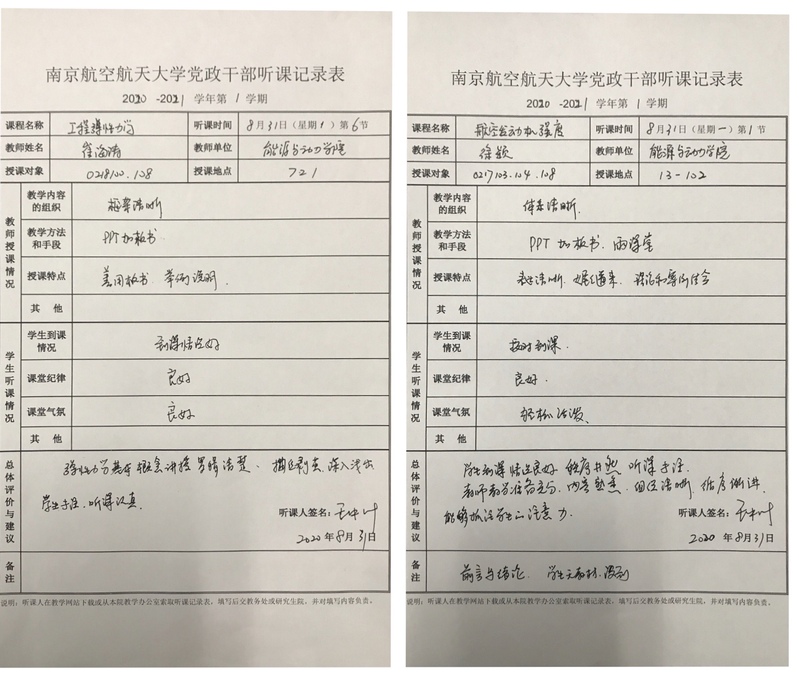 南京航空航天大学党政干部听课记录表
2020-2021 学年第 1 学期
课程名称 工程弹性力学 听课时间 8月31日（星期1）第6节
教师姓名 崔海涛 教师单位 能源与动力学院
授课对象 0218100.108 授课地点 721
教师授课情况
教学内容的组织 框架清晰
教学方法和手段 PPT加板书
授课特点 善用板书、举例说明.
其他
学生听课情况
学生到课情况 到课情况好
课堂纪律 良好
课堂气氛 良好
其他
总体评价与建议
弹性力学基本概念讲授逻辑清楚、 深入浅出
学生专注、听课认真.
听课人签名：
2020年8月31日
备注
说明：听课人在教学网站下载或从本院教学办公室索取听课记录表，填写后交教务处或研究生院，并对填写内容负责。
南京航空航天大学党政干部听课记录表
2020-2021 学年第 1 学期
课程名称 航空发动机强度 听课时间 8月31日（星期一）第1节
教师姓名 徐颖 教师单位 能源与动力学院
授课对象 0217103.104.108 授课地点 13-102
教师授课情况
教学内容的组织 体系清晰.
教学方法和手段 PPT加板书、雨课堂
授课特点 表述清晰、娓娓道来、理论和案例结合
其他
学生听课情况
学生到课情况 按时到课.
课堂纪律 良好.
课堂气氛 轻松活泼、
其他
总体评价与建议
学生到课情况良好 秩序井然、听课专注.
教师教学准备充分、内容熟悉、 清晰、循序渐进
能够抓住学生的注意力.
听课人签名：
2020年8月31日
备注 前言与绪论. 学生无教材.没到
说明：听课人在教学网站下载或从本院教学办公室索取听课记录表，填写后交教务处或研究生院，并对填写内容负责。